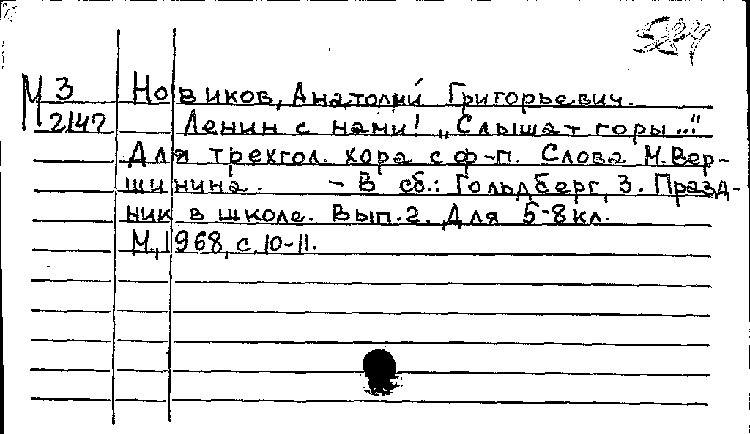 М 3 Новиков, Анатолий Григорьевич.
2147 Ленин с нами! „Слышат горы..."
Для трехгол. хора с ф-п. Слова М. Вер-
шинина. - В сб.: Гольдберг, З. Празд-
ник в школе. Вып. 2. Для 5-8 кл.
М., 1968, с. 10-11.